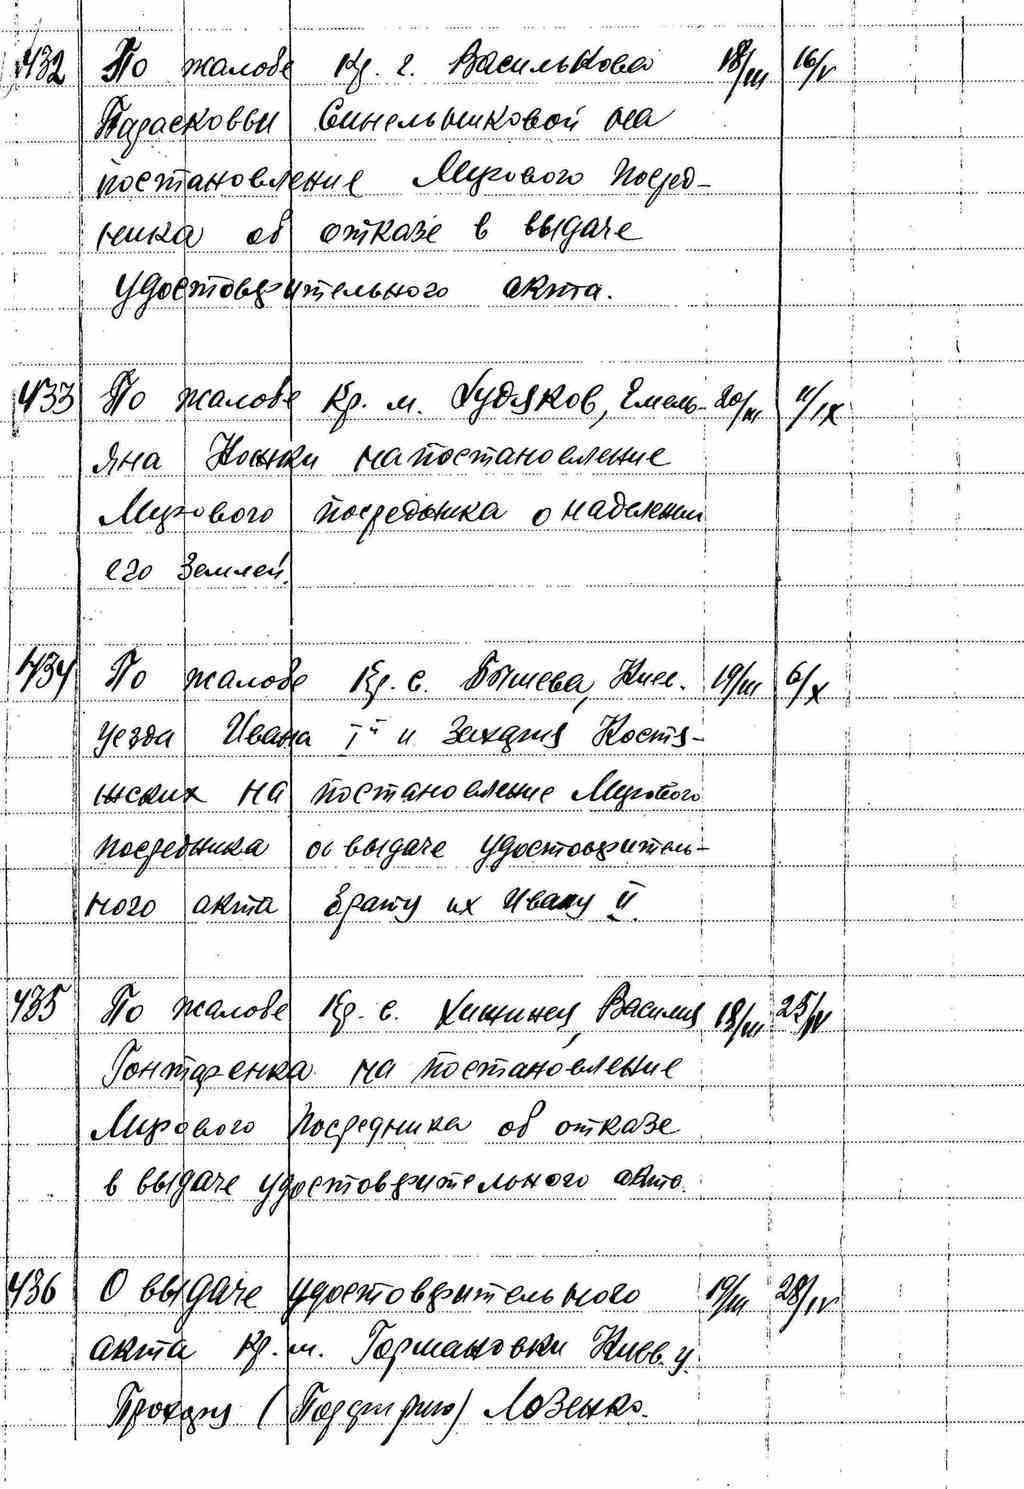 432 По жалобе Кр. г. Василькова 18/III 16/V
Парасковьи Синельниковой на
постановление Мирового Посред-
ника об отказе в выдаче
удостоверительного акта.
433 По жалобе Кр. м. Ходяков, Емель- 20/III 11/IX
яна Кошки на постановление
Мирового посредника о наделении
его землей.
434 По жалобе Кр. с. Бышева, Киев. 19/III 6/X
уезда Ивана I и Захария Костя-
нских на постановление Мирового
посредника о выдаче удостоверитель-
ного акта брату их Ивану II.
435 По жалобе Кр. с. Василия 18/III 25/IV
Гонтаренка на постановление
Мирового Посредника об отказе
в выдаче удостоверительного акта.
436 О выдаче удостоверительного 19/III 28/IV
акта Кр. м. Германовки Киев. у.
Прохору ( ) Лозенко.